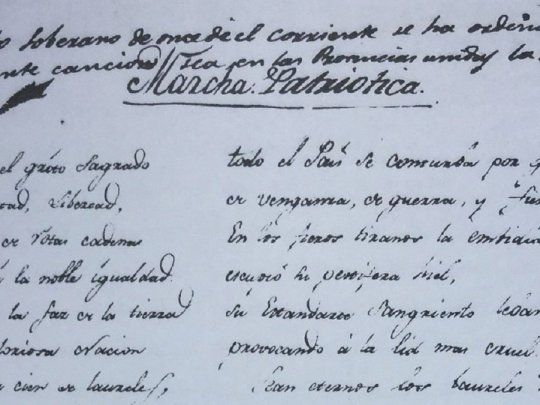 soberano de once de el corriente se ha orden
nte cancion en las Provincias unidas la
Marcha Patriotica.
el grito sagrado
tad, Libertad,
de rotas cadenas
la noble igualdad.
la faz de la tierra
loriosa Nacion
cien de laureles,
todo el Pais se comurba por g
de venganza, de guerra, y fu
En los fieros tiranos la embidia
escupió su pestifera hiel,
su Estandarte Sangriento leban
provocando á la lid mas cruel.
Sean eternos los Laureles